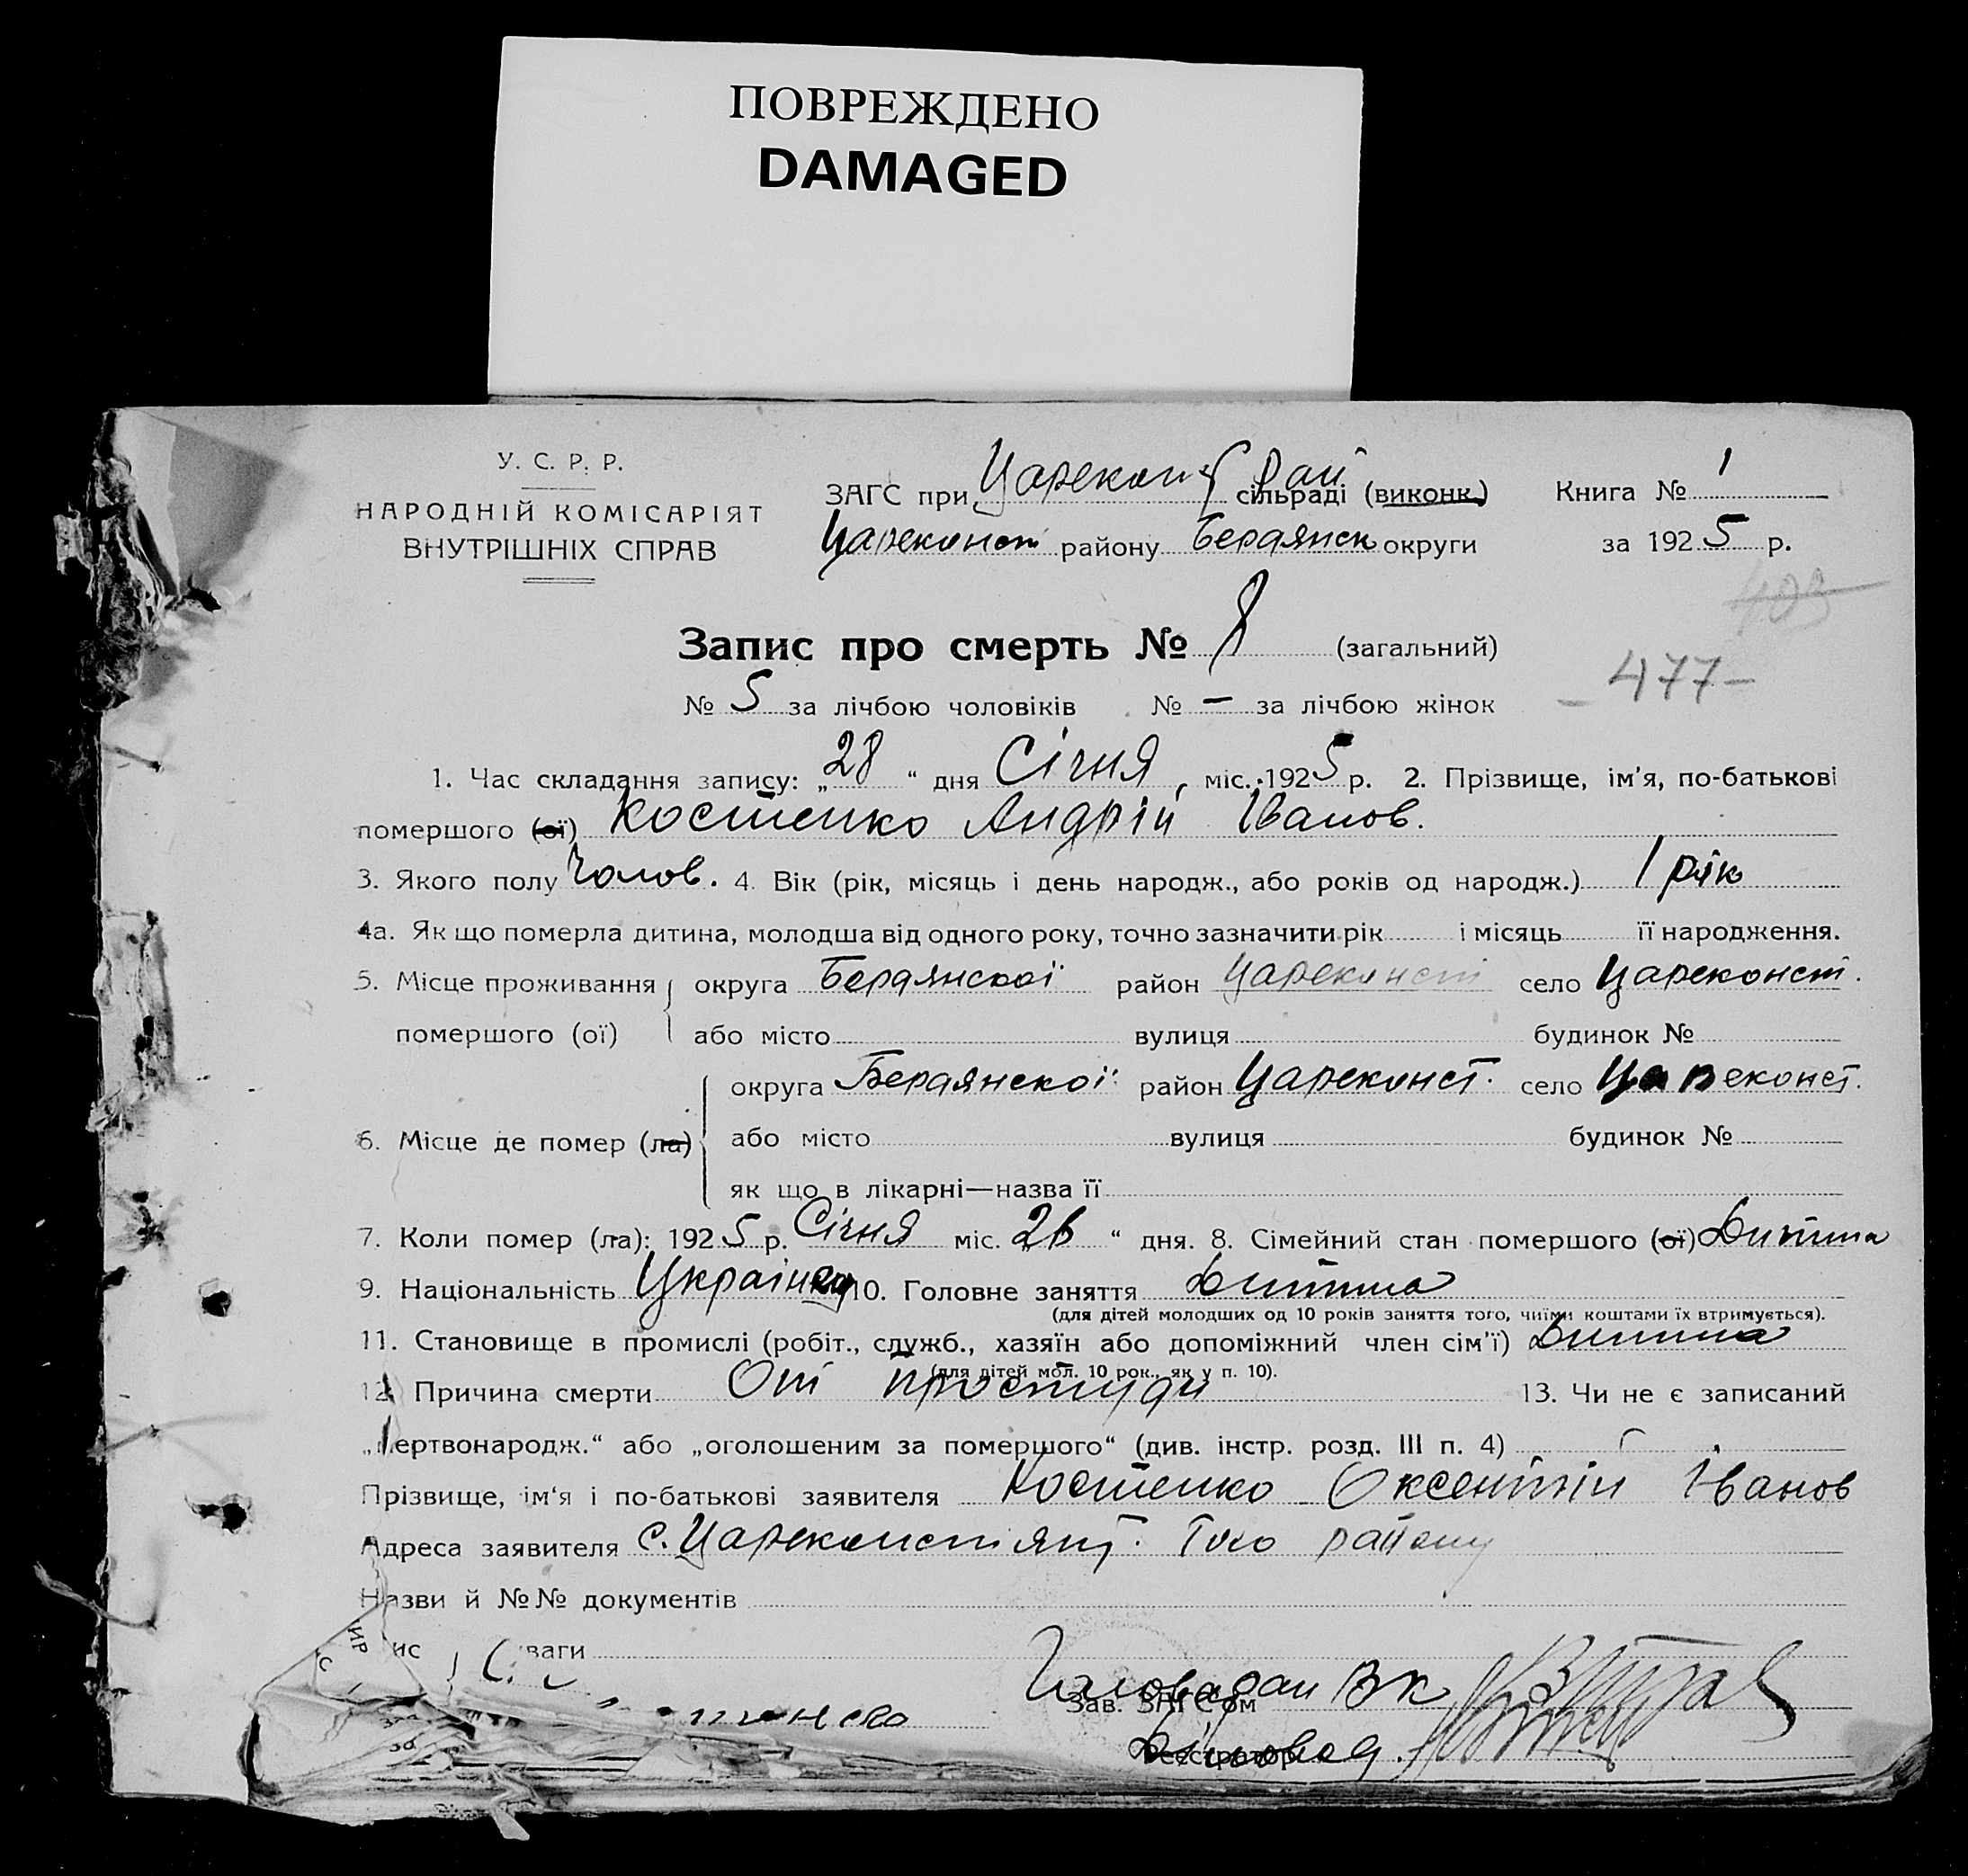 ПОВРЕЖДЕНО
DAMAGED
У. С. Р. Р.
НАРОДНІЙ КОМІСАРІЯТ
ВНУТРІШНІХ СПРАВ
ЗАГС при Царекон сільраді (виконк.) Рай
Цареконст району Бердянск округи
Книга № 1
за 1925 р.
403
Запис про смерть № 8 (загальний)
- 477 -
№ 5 за лічбою чоловіків № — за лічбою жінок
1. Час складання запису: „28“ дня Січня міс. 1925 р. 2. Прізвище, ім’я, по-батькові
помершого (ої) Костенко Андрій Іванов.
3. Якого полу Чолов. 4. Вік (рік, місяць і день народж., або років од народж.) 1 рік
4а. Як що померла дитина, молодша від одного року, точно зазначити рік і місяць її народження.
5. Місце проживання округа Бердянскої район Цареконст село Цареконст.
помершого (ої) або місто вулиця будинок №
округа Бердянскої район Цареконст. село Цареконст.
6. Місце де помер (ла) або місто вулиця будинок №
як що в лікарні—назва її
7. Коли помер (ла): 1925 р. Січня міс. 26 “ дня. 8. Сімейний стан помершого (ої) Дитина
9. Національність 10. Головне заняття Дитина
(для дітей молодших од 10 років заняття того, чиїми коштами їх втримується).
11. Становище в промислі (робіт., служб., хазяїн або допоміжний член сім’ї) Дитина
(для дітей мол. 10 рок., як у п. 10).
12. Причина смерти От простуди 13. Чи не є записаний
„Мертвонародж.“ або „оголошеним за помершого“ (див. інстр. розд. III п. 4)
Прізвище, ім‘я і по-батькові заявителя Костенко Оксентій Іванов
Адреса заявителя с. Цареконстянт. Того району
Назви й №№ документів
ис ваги
Зав. ЗАГС’ом
Реєстратор Діловод.